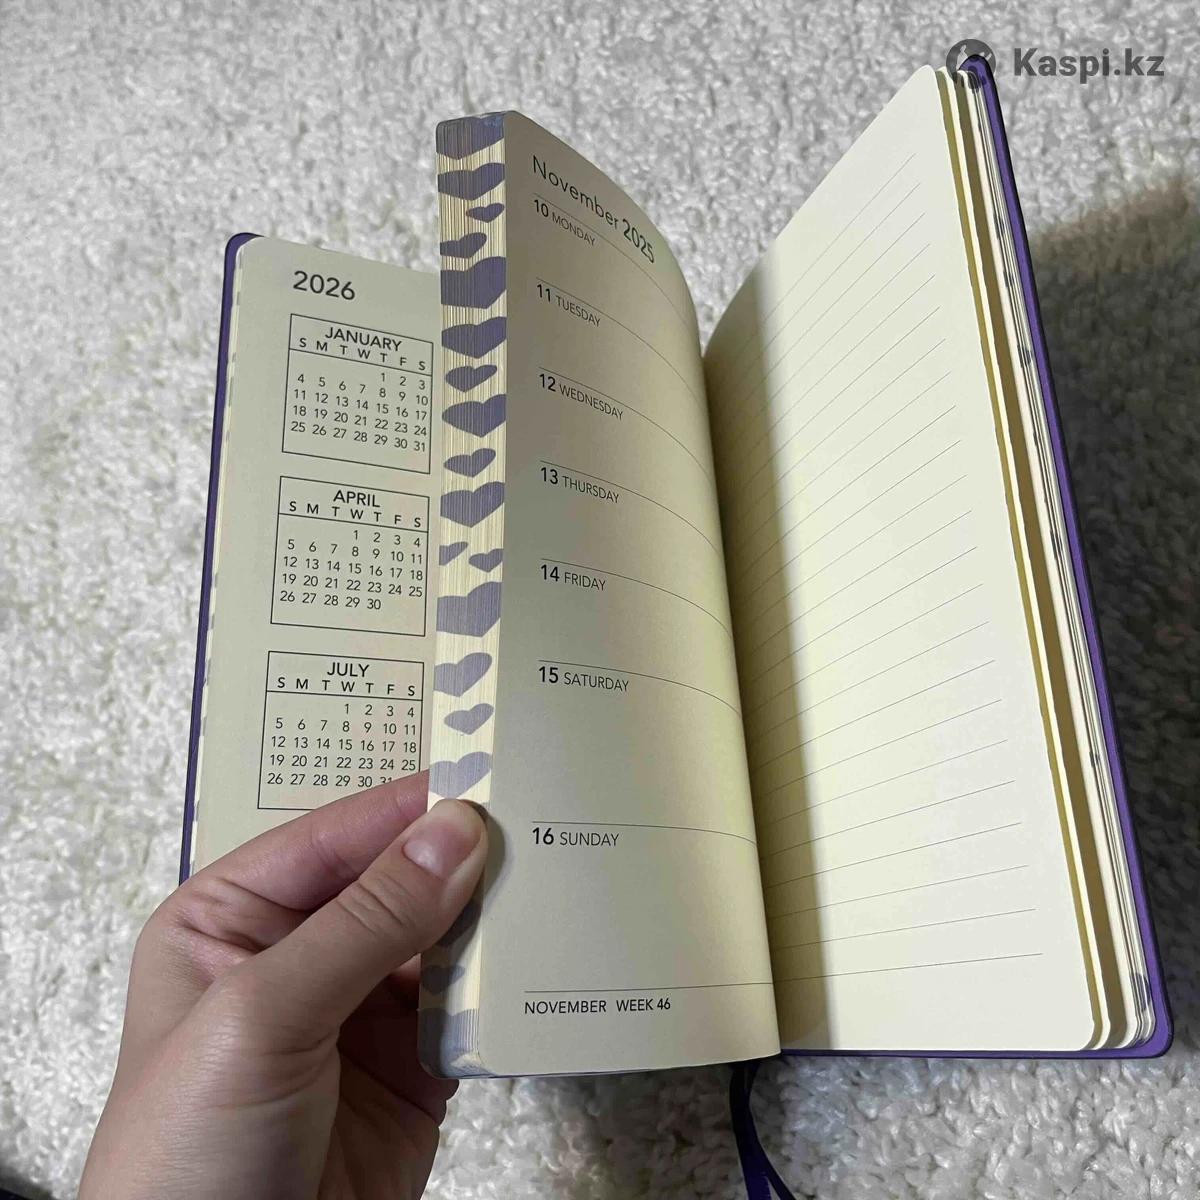 Kaspi.kz
2026
JANUARY
S M T W T F S
1 2 3
4 5 6 7 8 9 10
11 12 13 14 15 16 17
18 19 20 21 22 23 24
25 26 27 28 29 30 31
APRIL
S M T W T F S
1 2 3 4
5 6 7 8 9 10 11
12 13 14 15 16 17 18
19 20 21 22 23 24 25
26 27 28 29 30
JULY
S M T W T F S
1 2 3 4
5 6 7 8 9 10 11
12 13 14 15 16 17 18
19 20 21 22 23 24 25
26 27 28 29 30 31
November 2025
10 MONDAY
11 TUESDAY
12 WEDNESDAY
13 THURSDAY
14 FRIDAY
15 SATURDAY
16 SUNDAY
NOVEMBER WEEK 46